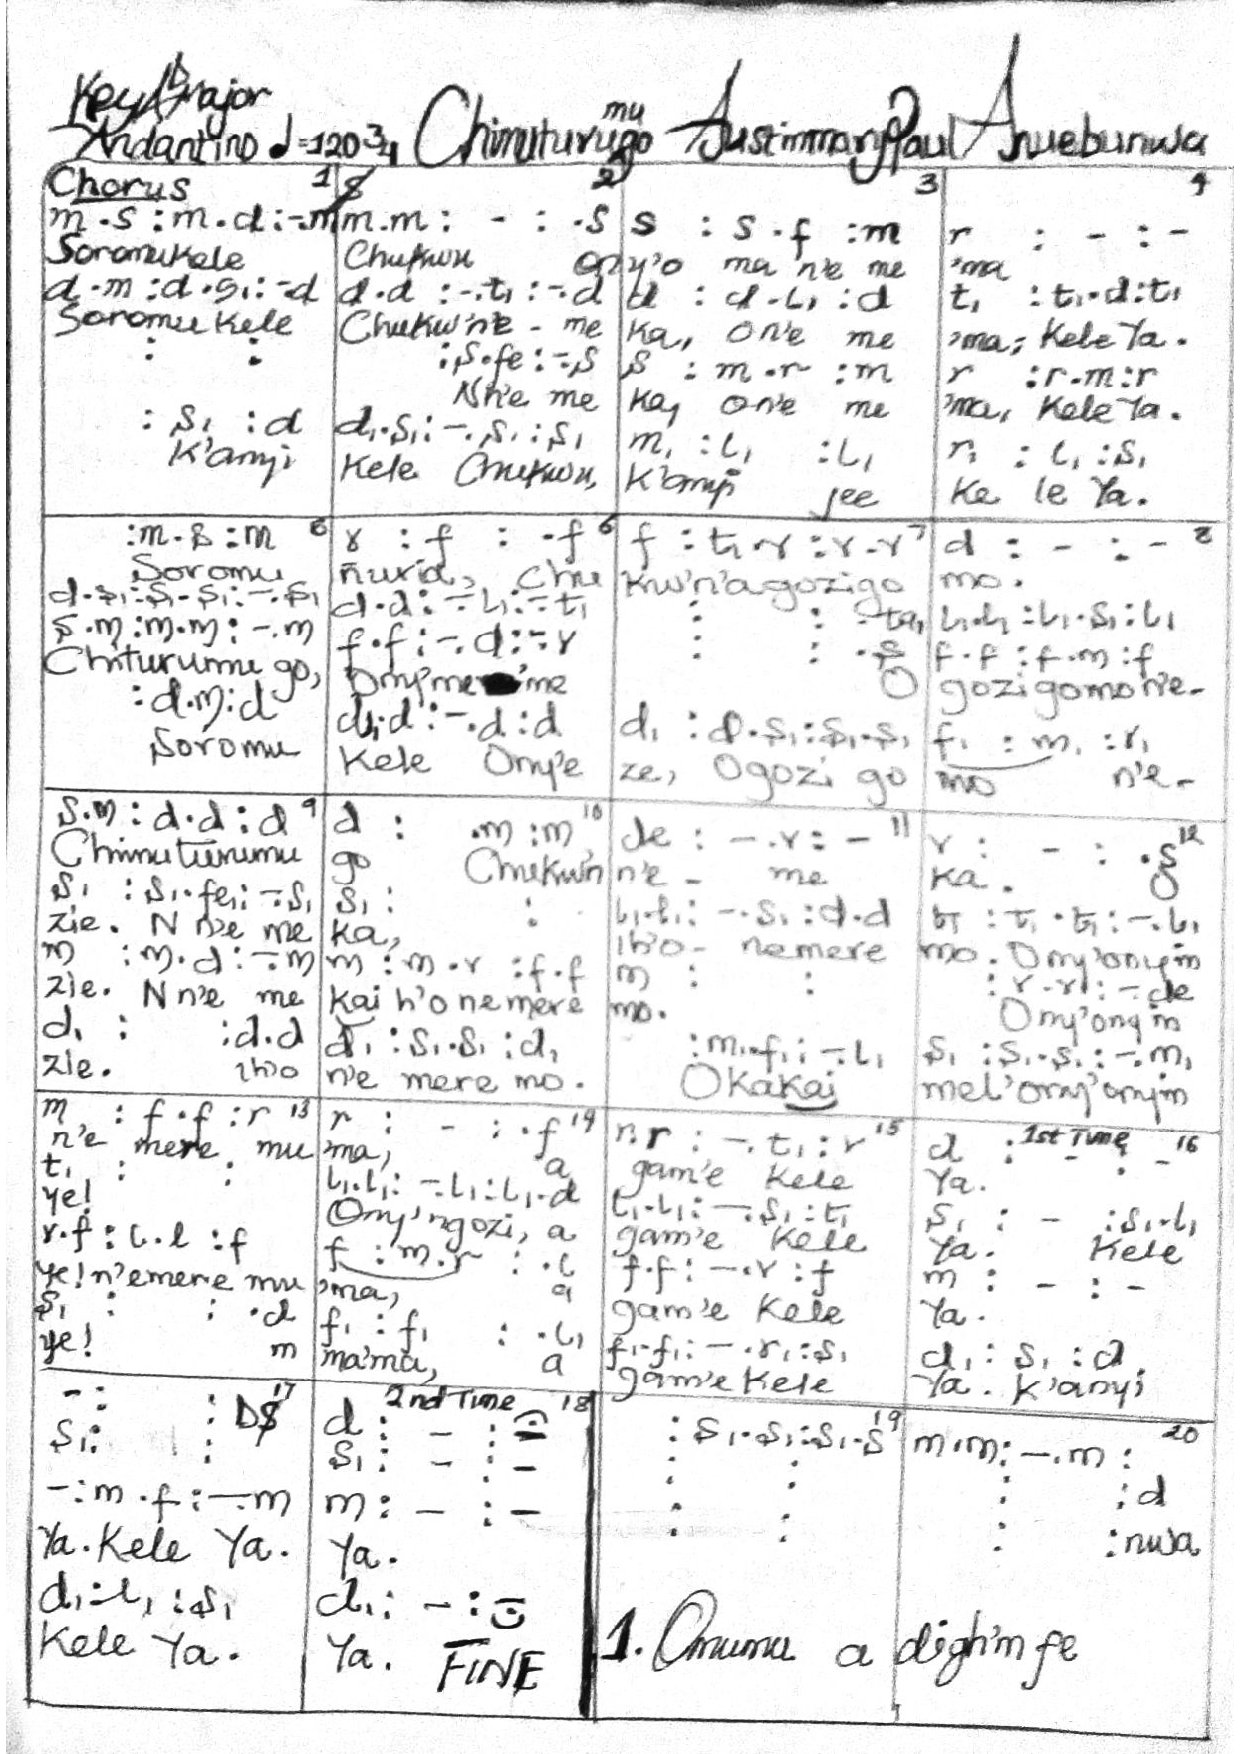 Key A Major
Andantino d=120 3/4 Chimuturumugo Austinmary Paul Anuebunwa
Chorus 1 2 3 4
m.s :m.d:-.m m.m : - : .s s : s.f :m r : - : -
Soromukele Chukwu ony'o ma n'e me 'ma
d.m :d.s₁:-.d d.d :-.t₁ :-.d d : d.l₁ :d t₁ : t₁.d:t₁
Soromu kele Chukwu'n'e - me ka, on'e me 'ma, Kele Ya.
: : :s.fe :-.s s : m.r :m r :r.m:r
Nn'e me ka, on'e me 'ma, Kele Ya.
: s₁ :d d.s₁:-.s₁:s₁ m₁ :l₁ :l₁ r₁ : l₁ :s₁
K'anyi Kele Chukwu, K'anyi jee Ke le Ya.
:m.s :m 5 r : f : .f 6 f : t₁.r :r.r 7 d : - : - 8
Soromu ñuria, Chu kwu'n'agozigo mo.
d.s₁:s₁.s₁:-.s₁ d.d :-.l₁:-.t₁ : : l₁.l₁ :l₁.s₁:l₁
s.m :m.m : -.m f.f :-.d:-.r : : .s f.f :f.m :f
Chituru mu go, Ony'mere'me O gozigomo n'e-
:d.m:d d.d :-.d :d d₁ : d.s₁:s₁.s₁ f₁ : m₁ :r₁
Soromu Kele Ony'e ze, Ogozi go mo n'e-
s.m : d.d :d 9 d : .m :m 10 de : -.r : - 11 r : - : .s 12
Chimuturumu go Chukwu'n n'e - me ka. O
s₁ :s₁.fe₁:-.s₁ s₁ : : l₁.l₁: -.s₁ :d.d t₁ : t₁.t₁ :-.l₁
zie. N n'e me ka, ih'o- nemere mo. Ony'onyin
m :m.d :-.m m : m.r :f.f m : : : r.r :-.de
zie. N n'e me kai h'o nemere mo. Ony'onyin
d₁ : :d.d d₁ : s₁.s₁ :d₁ :m₁.f₁ :-.l₁ s₁ :s₁.s₁ :-.m₁
zie. ih'o n'e mere mo. Okakai mel'ony'onyin
m : f.f :r 13 r : - : .f 14 r.r : -.t₁ : r 15 d : 1st Time - : - 16
n'e mere mu ma, a gam'e Kele Ya.
t₁ : : l₁.l₁: -.l₁:l₁.d l₁.l₁: -.s₁ :t₁ s₁ : - :s₁.l₁
ye! Ony'ngozi, a gam'e Kele Ya. Kele
r.f : l.l :f f :m.r : .l f.f : -.r :f m : - : -
ye! n'emere mu 'ma, a gam'e Kele Ya.
s₁ : : .d f₁ : f₁ : .l₁ f₁.f₁: -.r₁ :s₁ d₁ : s₁ :d
ye! m ma'ma, a gam'e Kele Ya. K'anyi
-: : DS 17 d : 2nd Time - : - 18 : s₁.s₁:s₁.s 19 m.m:-.m : 20
s₁: : s₁ : - : - : : : :d
-:m.f :-.m m : - : - : : : :nwa
Ya. Kele Ya. Ya.
d₁:l₁ :s₁ d₁: - : -
Kele Ya. Ya. FINE 1. Omumu a digh'm fe